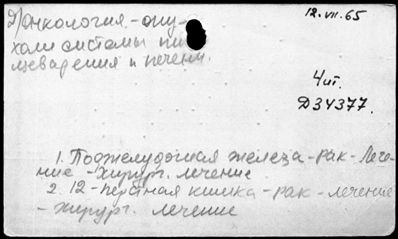 2) онкология - опу-
холи системы пи-
щеварения и печени.
12.VII.65
Чит.
Д34377.
1. Поджелудочная железа - рак - лече-
ние - хирург. лечение
2. 12-перстная кишка - рак - лечение
- хирург. лечение